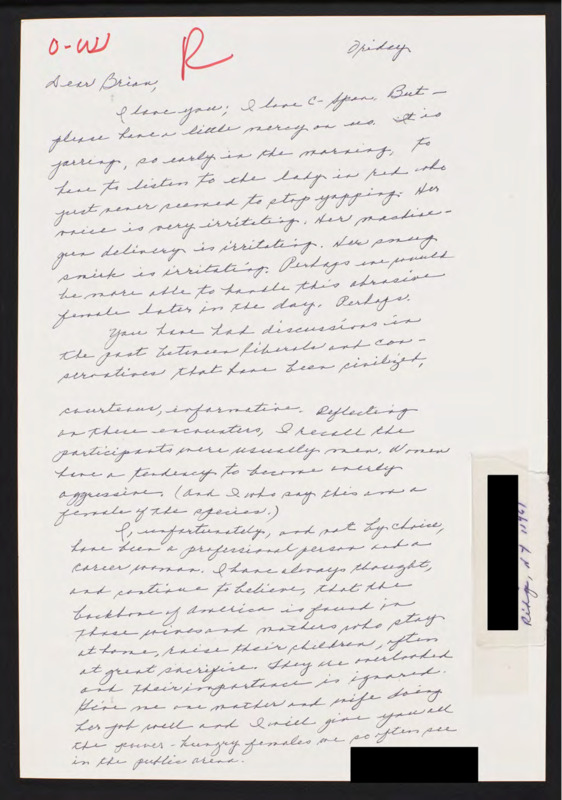 O-W
R
Friday
Dear Brian,
I love you; I love C-Span. But —
please have a little mercy on us. It is
jarring, so early in the morning, to
have to listen to the lady in red who
just never seemed to stop yapping. Her
voice is very irritating. Her machine-
gun delivery is irritating. Her smug
smirk is irritating. Perhaps we would
be more able to handle this abrasive
female later in the day. Perhaps.
You have had discussions in
the past between liberals and con-
servatives that have been civilized,
courteous, informative. Reflecting
on these encounters, I recall the
participants were usually men. Women
have a tendency to become overly
aggressive. (And I who say this am a
female of the species.)
I, unfortunately, and not by choice,
have been a professional person and a
career woman. I have always thought,
and continue to believe, that the
backbone of America is found in
those wives and mothers who stay
at home, raise their children, often
at great sacrifice. They are overlooked
and their importance is ignored.
Give me one mother and wife doing
her job well and I will give you all
the power-hungry females we so often see
in the public arena.
Ridge, NY 11961